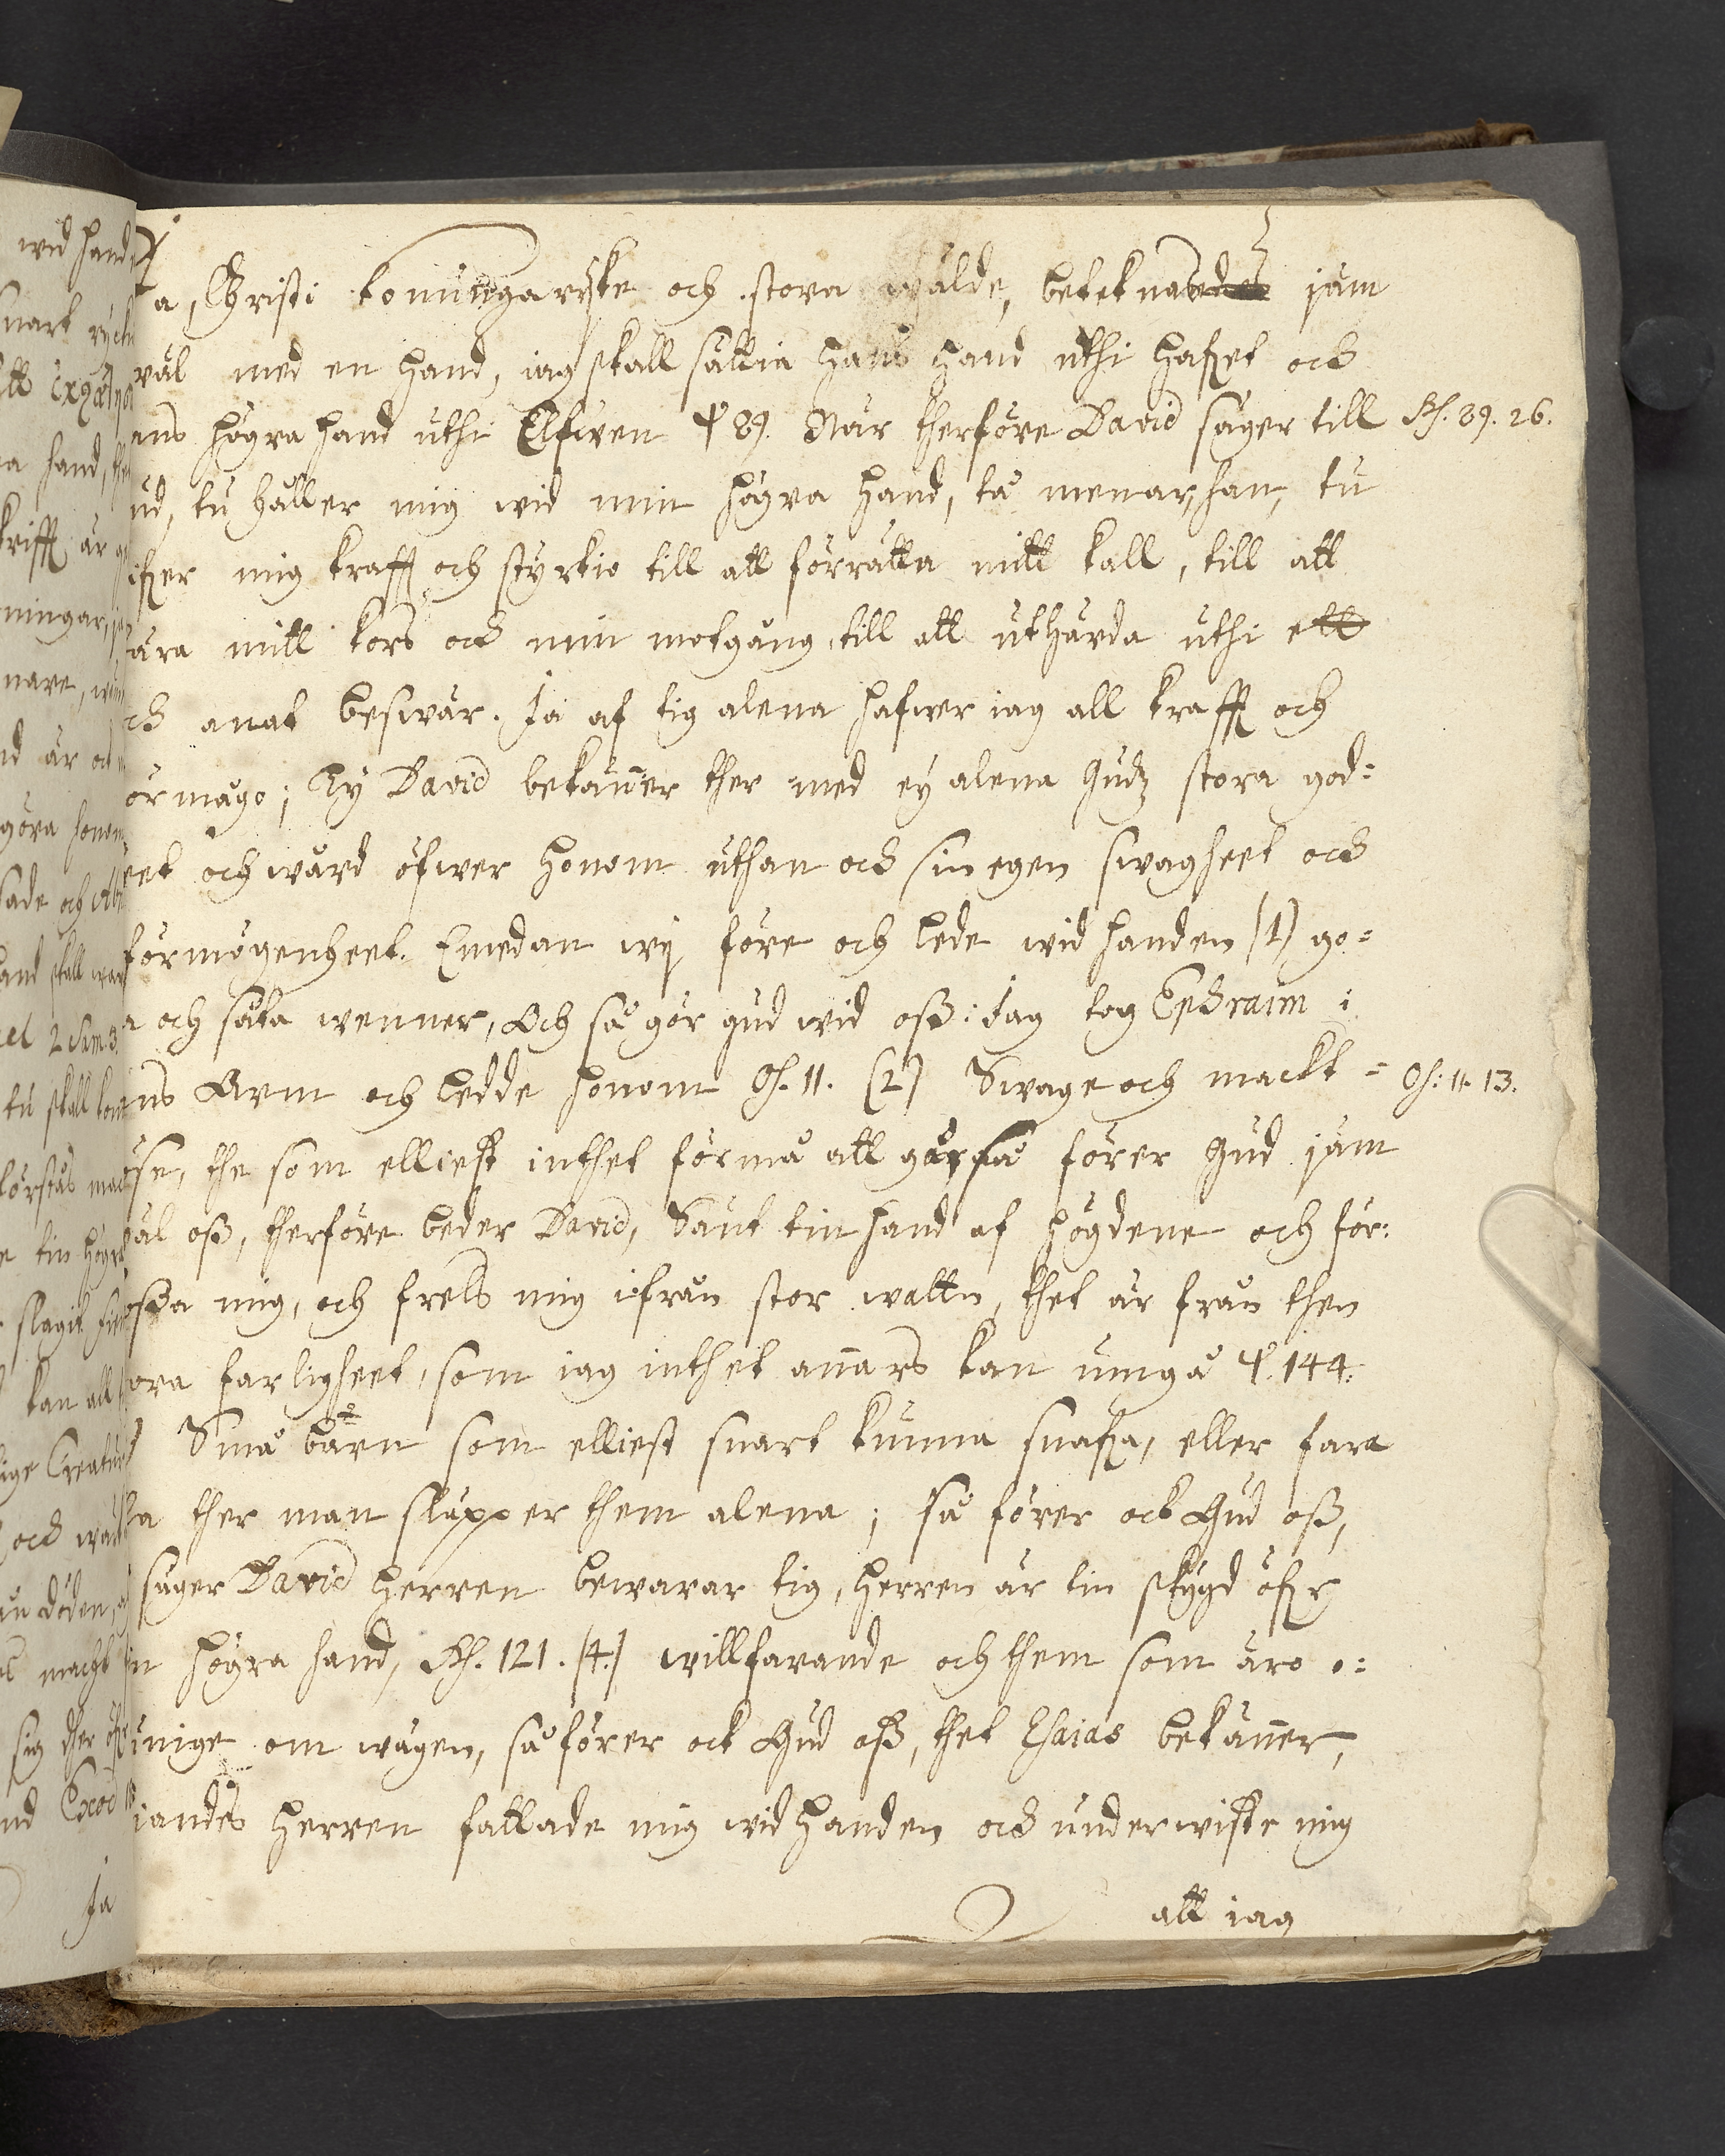 Ja, Christi konungarÿke och stora wälde, beteknas jäm
wäl med en hand, iag skall sättia hans hand uthi hafvet och
ans högra hand uthi Elfwen Ψ 89. När therföre David säger till Ps. 89. 26.
ud, tu håller mig wid min högra hand, tå menar han, tu
ifver mig krafft och styrkio till att förrätta mitt kall, till att
ära mitt kors och min motgång, till att uthärda uthi ett
ch anat beswär. Ja af tig alena hafwer iag all krafft och
ör mågo; Ty David bekänner ther med ey alena Gudz stora god=
eet och wård öfwer honom uthan och sin egen swagheet och
förmögenheet. Emedan wij före och lede wid handen (1) go=
a och såta wenner, Och så gör gud wid oss: Jag tog Ephraim i
ns Arm och ledde honom Os. 11. (2) Swage och mackt= Os: 11. 13.
öse, the som elliest inthet förmå att gå, så förer Gud jäm
wäl oss, therföre beder David, Sänt tin hand af högdene och för:
ossa mig, och frels mig ifrån stor wattn, thet är från then
ora farligheet, som iag inthet annars kan umgå Ψ. 144.
Små bärn som elliest snart kunna snafva, eller fara
la ther man släpper them alena; så förer ock Gud oss,
säger David Herren bewarar tig, Herren är tin skygd öfver
in högra hand, Ps. 121. (4.) willfarande och them som äro o:
unige om wägen, så förer ock Gud oss, thet Esaias bekänner,
iandes Herren fattade mig wid handen och underwiste mig
att iag